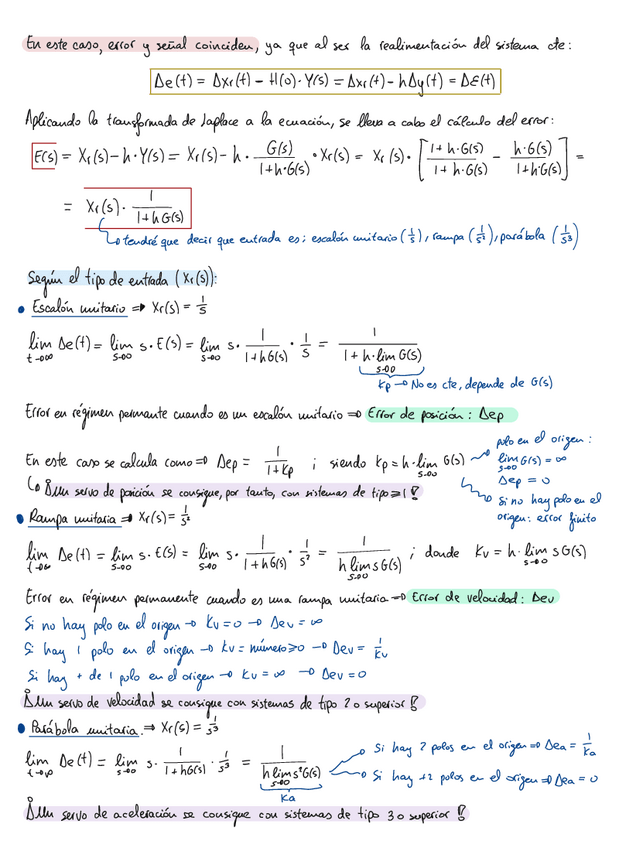 En este caso, error y señal coinciden, ya que al ser la realimentación del sistema cte:
Δe(t) = Δxr(t) - H(0)·Y(s) = Δxr(t) - hΔy(t) = ΔE(t)
Aplicando la transformada de Laplace a la ecuación, se lleva a cabo el cálculo del error:
E(s) = Xr(s) - h·Y(s) = Xr(s) - h · G(s)/(1+h·G(s)) · Xr(s) = Xr(s) · [(1+h·G(s))/(1+h·G(s)) - h·G(s)/(1+h·G(s))] =
= Xr(s) · 1/(1+h G(s))
↳ tendré que decir que entrada es; escalón unitario (1/s), rampa (1/s²), parábola (1/s³)
Según el tipo de entrada (Xr(s)):
• Escalón unitario ⇒ Xr(s) = 1/s
lim t→∞ Δe(t) = lim s→0 s·E(s) = lim s→0 s · 1/(1+hG(s)) · 1/s = 1/(1+h·lim s→0 G(s))
Kp → No es cte, depende de G(s)
Error en régimen permante cuando es un escalón unitario ⇒ Error de posición: Δep
En este caso se calcula como ⇒ Δep = 1/(1+Kp) ; siendo Kp = h·lim s→0 G(s)
polo en el origen:
lim s→0 G(s) = ∞
Δep = 0
Si no hay polo en el
origen: error finito
↳ ¡Un servo de posición se consigue, por tanto, con sistemas de tipo ≥ 1!
• Rampa unitaria ⇒ Xr(s) = 1/s²
lim t→∞ Δe(t) = lim s→0 s·E(s) = lim s→0 s · 1/(1+hG(s)) · 1/s² = 1/(h lim s→0 sG(s)) ; donde Kv = h·lim s→0 sG(s)
Error en régimen permanente cuando es una rampa unitaria ⇒ Error de velocidad: Δev
Si no hay polo en el origen → Kv = 0 → Δev = ∞
Si hay 1 polo en el origen → Kv = número ≥ 0 → Δev = 1/Kv
Si hay + de 1 polo en el origen → Kv = ∞ → Δev = 0
¡Un servo de velocidad se consigue con sistemas de tipo 2 o superior!
• Parábola unitaria. ⇒ Xr(s) = 1/s³
lim t→∞ Δe(t) = lim s→0 s · 1/(1+hG(s)) · 1/s³ = 1/(h lim s→0 s²G(s))
Ka
Si hay 2 polos en el origen ⇒ Δea = 1/Ka
Si hay +2 polos en el origen ⇒ Δea = 0
¡Un servo de aceleración se consigue con sistemas de tipo 3 o superior!